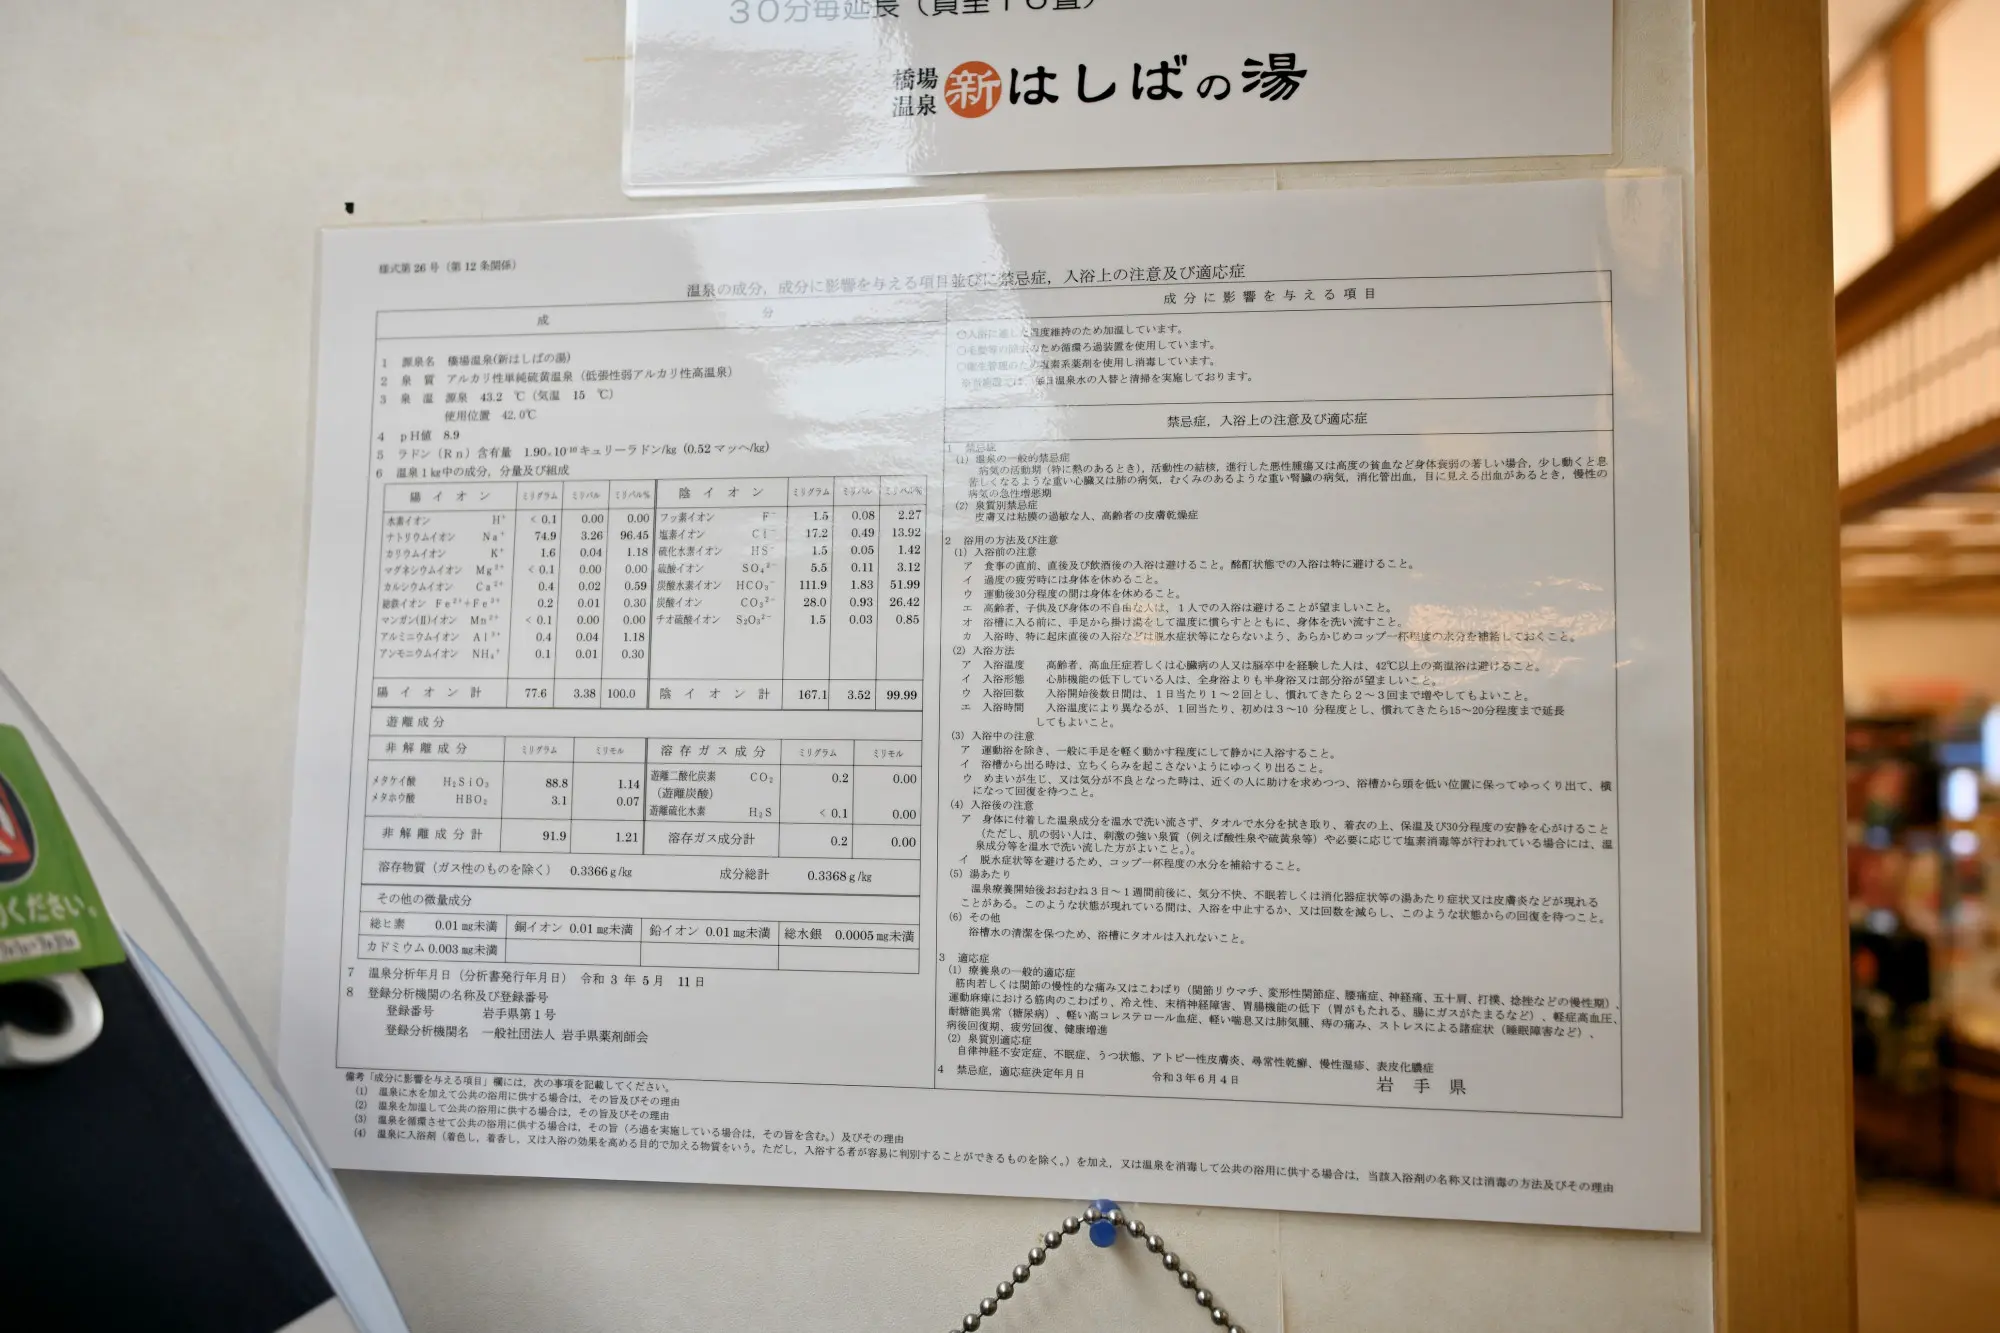 30分毎延長（貸室10畳）
橋場温泉 新 はしばの湯
様式第26号（第12条関係）
温泉の成分，成分に影響を与える項目並びに禁忌症，入浴上の注意及び適応症
成　分
1　源泉名　橋場温泉(新はしばの湯)
2　泉　質　アルカリ性単純硫黄温泉（低張性弱アルカリ性高温泉）
3　泉　温　源泉　43.2　℃（気温　15　℃）
使用位置　42.0℃
4　pH値　8.9
5　ラドン（Rn）含有量　1.90×10⁻¹⁰キュリーラドン/kg（0.52マッヘ/kg）
6　温泉1kg中の成分，分量及び組成
陽イオン　ミリグラム　ミリバル　ミリバル%　陰イオン　ミリグラム　ミリバル　ミリバル%
水素イオン　H⁺　< 0.1　0.00　0.00　フッ素イオン　F⁻　1.5　0.08　2.27
ナトリウムイオン　Na⁺　74.9　3.26　96.45　塩素イオン　Cl⁻　17.2　0.49　13.92
カリウムイオン　K⁺　1.6　0.04　1.18　硫化水素イオン　HS⁻　1.5　0.05　1.42
マグネシウムイオン　Mg²⁺　< 0.1　0.00　0.00　硫酸イオン　SO₄²⁻　5.5　0.11　3.12
カルシウムイオン　Ca²⁺　0.4　0.02　0.59　炭酸水素イオン　HCO₃⁻　111.9　1.83　51.99
総鉄イオン　Fe²⁺+Fe³⁺　0.2　0.01　0.30　炭酸イオン　CO₃²⁻　28.0　0.93　26.42
マンガン(II)イオン　Mn²⁺　< 0.1　0.00　0.00　チオ硫酸イオン　S₂O₃²⁻　1.5　0.03　0.85
アルミニウムイオン　Al³⁺　0.4　0.04　1.18
アンモニウムイオン　NH₄⁺　0.1　0.01　0.30
陽イオン計　77.6　3.38　100.0　陰イオン計　167.1　3.52　99.99
遊離成分
非解離成分　ミリグラム　ミリモル　溶存ガス成分　ミリグラム　ミリモル
メタケイ酸　H₂SiO₃　88.8　1.14　遊離二酸化炭素　CO₂　0.2　0.00
メタホウ酸　HBO₂　3.1　0.07　（遊離炭酸）
遊離硫化水素　H₂S　< 0.1　0.00
非解離成分計　91.9　1.21　溶存ガス成分計　0.2　0.00
溶存物質（ガス性のものを除く）　0.3366g/kg　成分総計　0.3368g/kg
その他の微量成分
総ヒ素　0.01mg未満　銅イオン　0.01mg未満　鉛イオン　0.01mg未満　総水銀　0.0005mg未満
カドミウム 0.003mg未満
7　温泉分析年月日（分析書発行年月日）　令和3年5月　11日
8　登録分析機関の名称及び登録番号
登録番号　岩手県第1号
登録分析機関名　一般社団法人 岩手県薬剤師会
成分に影響を与える項目
○入浴に適した温度維持のため加温しています。
のため循環ろ過装置を使用しています。
○衛生管理のため塩素系薬剤を使用し消毒しています。
※当施設では、毎日温泉水の入替と清掃を実施しております。
禁忌症，入浴上の注意及び適応症
1　禁忌症
(1) 温泉の一般的禁忌症
病気の活動期（特に熱のあるとき），活動性の結核，進行した悪性腫瘍又は高度の貧血など身体衰弱の著しい場合，少し動くと息
苦しくなるような重い心臓又は肺の病気，むくみのあるような重い腎臓の病気，消化管出血，目に見える出血があるとき，慢性の
病気の急性増悪期
(2) 泉質別禁忌症
皮膚又は粘膜の過敏な人、高齢者の皮膚乾燥症
2　浴用の方法及び注意
(1) 入浴前の注意
ア　食事の直前、直後及び飲酒後の入浴は避けること。酩酊状態での入浴は特に避けること。
イ　過度の疲労時には身体を休めること。
ウ　運動後30分程度の間は身体を休めること。
エ　高齢者、子供及び身体の不自由な人は、1人での入浴は避けることが望ましいこと。
オ　浴槽に入る前に、手足から掛け湯をして温度に慣らすとともに、身体を洗い流すこと。
カ　入浴時、特に起床直後の入浴などは脱水症状等にならないよう、あらかじめコップ一杯程度の水分を補給しておくこと。
(2) 入浴方法
ア　入浴温度　高齢者、高血圧症若しくは心臓病の人又は脳卒中を経験した人は、42℃以上の高温浴は避けること。
イ　入浴形態　心肺機能の低下している人は、全身浴よりも半身浴又は部分浴が望ましいこと。
ウ　入浴回数　入浴開始後数日間は、1日当たり1～2回とし、慣れてきたら2～3回まで増やしてもよいこと。
エ　入浴時間　入浴温度により異なるが、1回当たり、初めは3～10 分程度とし、慣れてきたら15～20分程度まで延長
してもよいこと。
(3) 入浴中の注意
ア　運動浴を除き、一般に手足を軽く動かす程度にして静かに入浴すること。
イ　浴槽から出る時は、立ちくらみを起こさないようにゆっくり出ること。
ウ　めまいが生じ、又は気分が不良となった時は、近くの人に助けを求めつつ、浴槽から頭を低い位置に保ってゆっくり出て、横
になって回復を待つこと。
(4) 入浴後の注意
ア　身体に付着した温泉成分を温水で洗い流さず、タオルで水分を拭き取り、着衣の上、保温及び30分程度の安静を心がけること
（ただし、肌の弱い人は、刺激の強い泉質（例えば酸性泉や硫黄泉等）や必要に応じて塩素消毒等が行われている場合には、温
泉成分等を温水で洗い流した方がよいこと。）。
イ　脱水症状等を避けるため、コップ一杯程度の水分を補給すること。
(5) 湯あたり
温泉療養開始後おおむね3日～1週間前後に、気分不快、不眠若しくは消化器症状等の湯あたり症状又は皮膚炎などが現れる
ことがある。このような状態が現れている間は、入浴を中止するか、又は回数を減らし、このような状態からの回復を待つこと。
(6) その他
浴槽水の清潔を保つため、浴槽にタオルは入れないこと。
3　適応症
(1) 療養泉の一般的適応症
筋肉若しくは関節の慢性的な痛み又はこわばり（関節リウマチ、変形性関節症、腰痛症、神経痛、五十肩、打撲、捻挫などの慢性期）、
運動麻痺における筋肉のこわばり、冷え性、末梢神経障害、胃腸機能の低下（胃がもたれる、腸にガスがたまるなど）、軽症高血圧、
耐糖能異常（糖尿病）、軽い高コレステロール血症、軽い喘息又は肺気腫、痔の痛み、ストレスによる諸症状（睡眠障害など）、
病後回復期、疲労回復、健康増進
(2) 泉質別適応症
自律神経不安定症、不眠症、うつ状態、アトピー性皮膚炎、尋常性乾癬、慢性湿疹、表皮化膿症
4　禁忌症，適応症決定年月日　令和3年6月4日
岩手県
備考「成分に影響を与える項目」欄には，次の事項を記載してください。
(1)　温泉に水を加えて公共の浴用に供する場合は，その旨及びその理由
(2)　温泉を加温して公共の浴用に供する場合は，その旨及びその理由
(3)　温泉を循環させて公共の浴用に供する場合は，その旨（ろ過を実施している場合は，その旨を含む。）及びその理由
(4)　温泉に入浴剤（着色し，着香し，又は入浴の効果を高める目的で加える物質をいう。ただし，入浴する者が容易に判別することができるものを除く。）を加え，又は温泉を消毒して公共の浴用に供する場合は，当該入浴剤の名称又は消毒の方法及びその理由
ください。